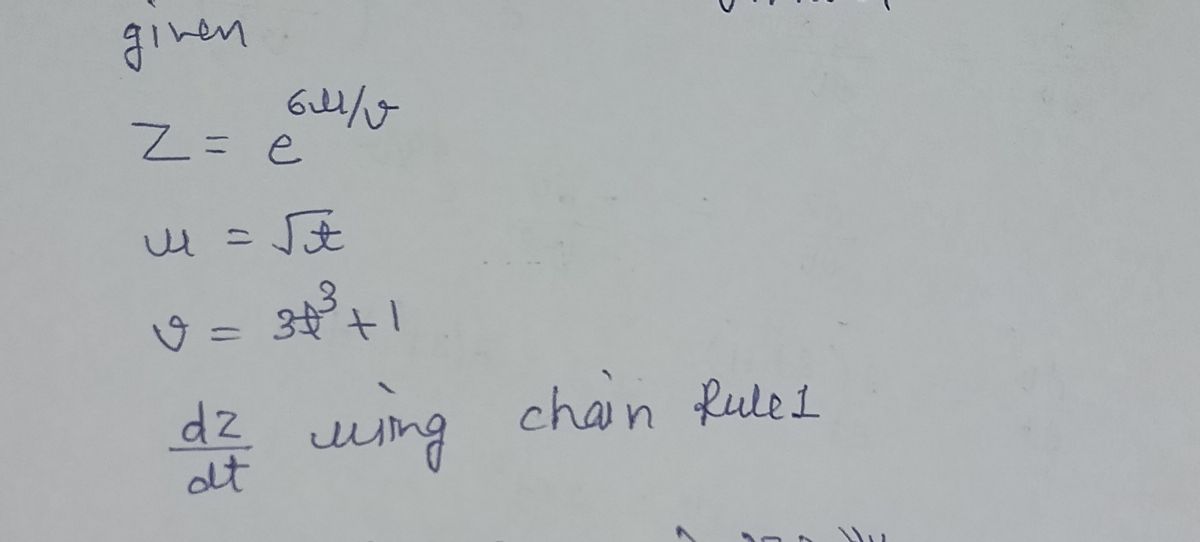 given
Z = e^6u/v
u = √t
v = 3t³+1
dz/dt using chain Rule1